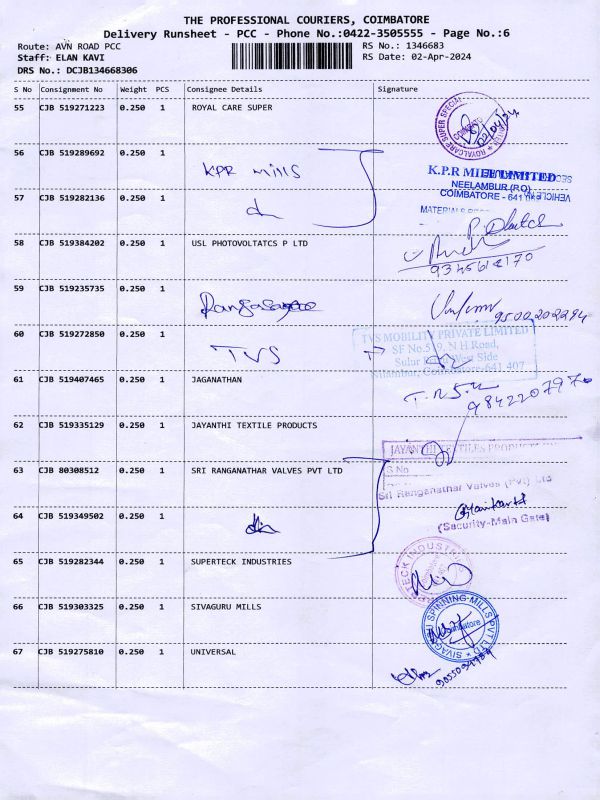 THE PROFESSIONAL COURIERS, COIMBATORE
Delivery Runsheet - PCC - Phone No.:0422-3505555 - Page No.:6
Route: AVN ROAD PCC
RS No.: 1346683
Staff: ELAN KAVI
RS Date: 02-Apr-2024
DRS No.: DCJB134668306
S No Consignment No Weight PCS Consignee Details Signature
55 CJB 519271223 0.250 1 ROYAL CARE SUPER
02/04/24
56 CJB 519289692 0.250 1 KPR Mills
K.P.R MILL LIMITED
NEELAMBUR (P.O)
COIMBATORE - 641
57 CJB 519282136 0.250 1
58 CJB 519384202 0.250 1 USL PHOTOVOLTATCS P LTD
9345614170
59 CJB 519235735 0.250 1
9500202294
60 CJB 519272850 0.250 1 TVS
TVS MOBILITY PRIVATE LIMITED
SF No.5 9, N H Road,
Sulur West Side
Nilambur, Coimbatore-641 407
61 CJB 519407465 0.250 1 JAGANATHAN
62 CJB 519335129 0.250 1 JAYANTHI TEXTILE PRODUCTS
JAYANTHI TEXTILES
S.No
63 CJB 80308512 0.250 1 SRI RANGANATHAR VALVES PVT LTD
Sri Ranganathar Valves (Pvt) Ltd
64 CJB 519349502 0.250 1
(Security-Main Gate)
65 CJB 519282344 0.250 1 SUPERTECK INDUSTRIES
66 CJB 519303325 0.250 1 SIVAGURU MILLS
SIVAGURU SPINNING MILLS PVT LTD
67 CJB 519275810 0.250 1 UNIVERSAL